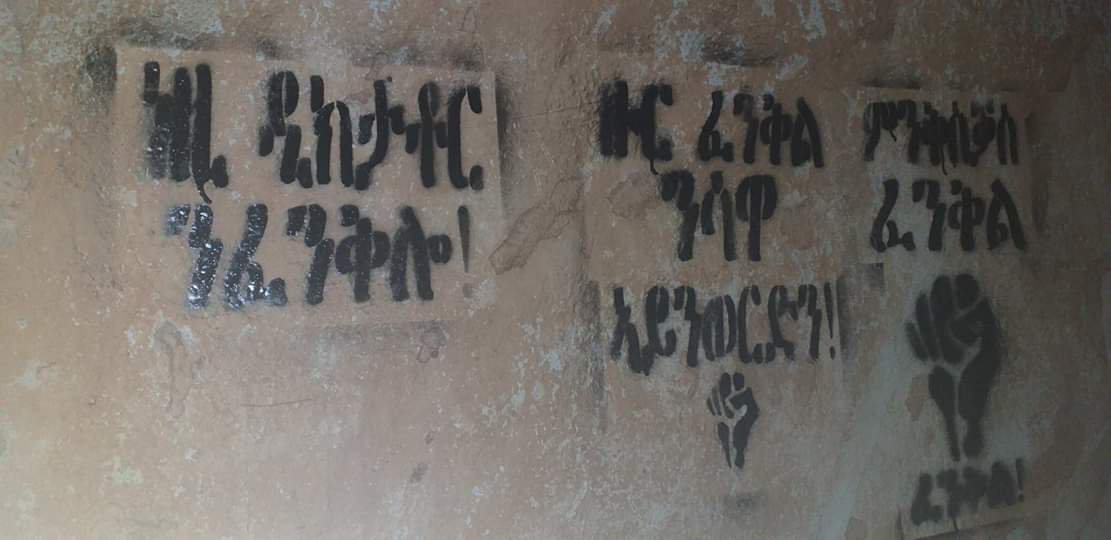 ነዚ ዲክታቶር
ንፈንቅሎ!
ዙር ፈንቅል
ንሳዋ
ኣይንወርድን!
ምንቅስቃስ
ፈንቅል
ፈንቅል!